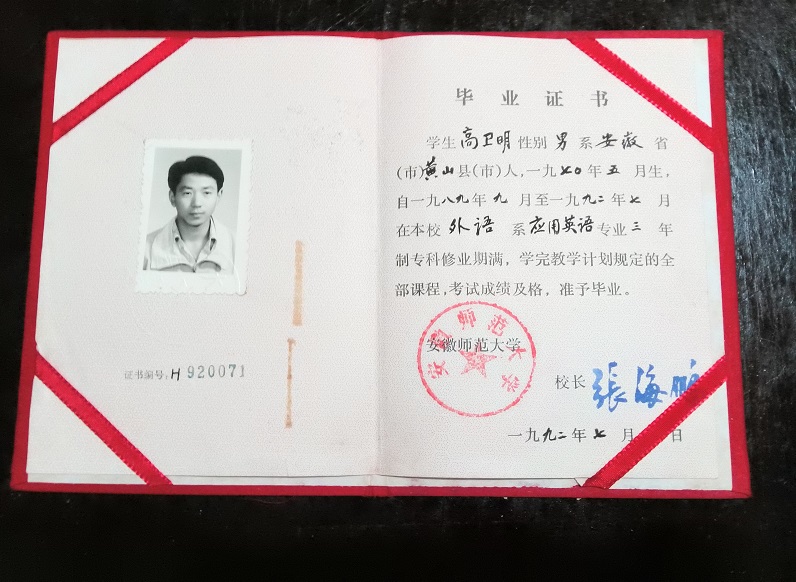 证书编号:H 920071
毕业证书
学生高卫明性别男系安徽省
(市)黄山县(市)人,一九七〇年五月生,
自一九八九年九月至一九九二年七月
在本校外语系应用英语专业三年
制专科修业期满,学完教学计划规定的全
部课程,考试成绩及格,准予毕业。
安徽师范大学
安徽师范大学
校长 張海鹏
一九九二年七月 日